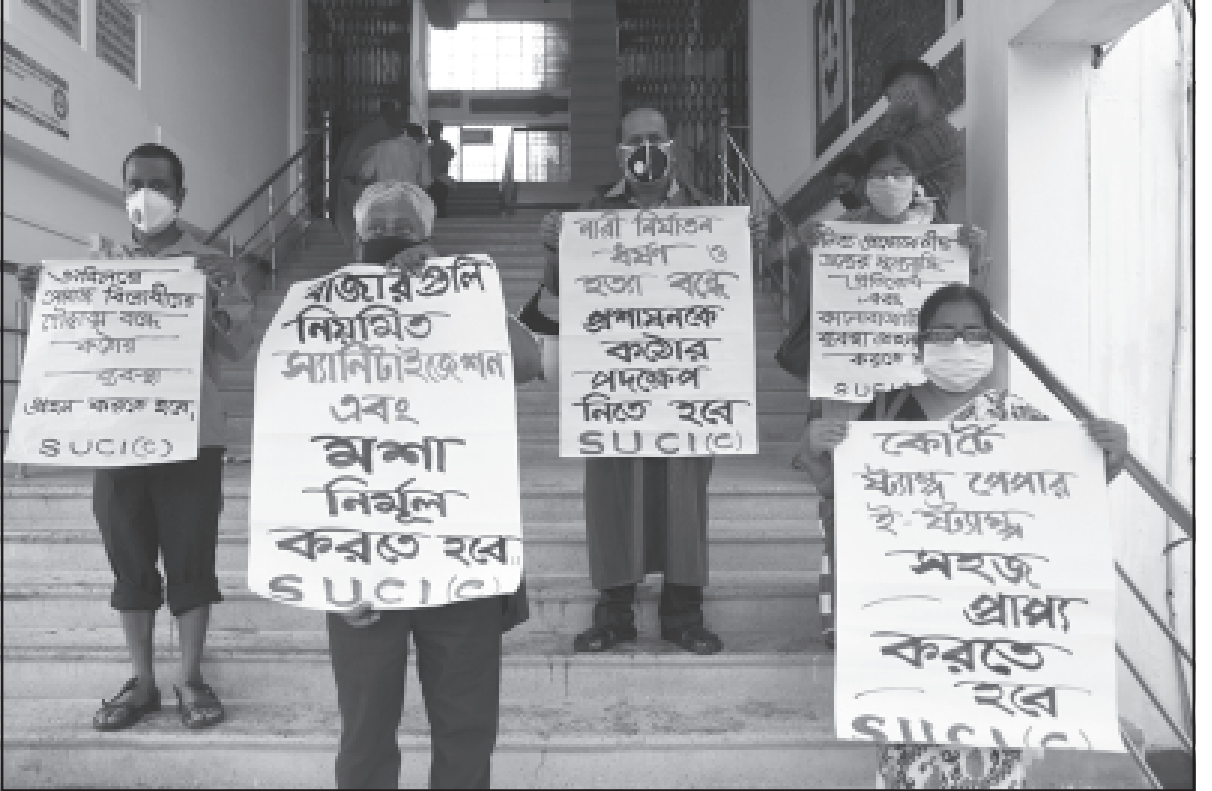 অবিলম্বে
সমাজ বিরোধীদের
দৌরাত্ম্য বন্ধে
কঠোর
ব্যবস্থা
গ্রহন করতে হবে,
SUCI(C)
বাজারগুলি
নিয়মিত
স্যানিটাইজেশন
এবং
মশা
নির্মূল
করতে হবে
SUCI(C)
নারী নির্যাতন
ধর্ষণ ও
হত্যা বন্ধে
প্রশাসনকে
কঠোর
পদক্ষেপ
নিতে হবে
SUCI(C)
নিত্য প্রয়োজনীয়
মূল্যবৃদ্ধি
প্রতিরোধ
এবং
ব্যবস্থা গ্রহন
করতে
SUCI
কোর্টে
ষ্ট্যাম্প পেপার
ই-ষ্ট্যাম্প
সহজ
প্রাপ্য
করতে
হবে
SUCI(C)